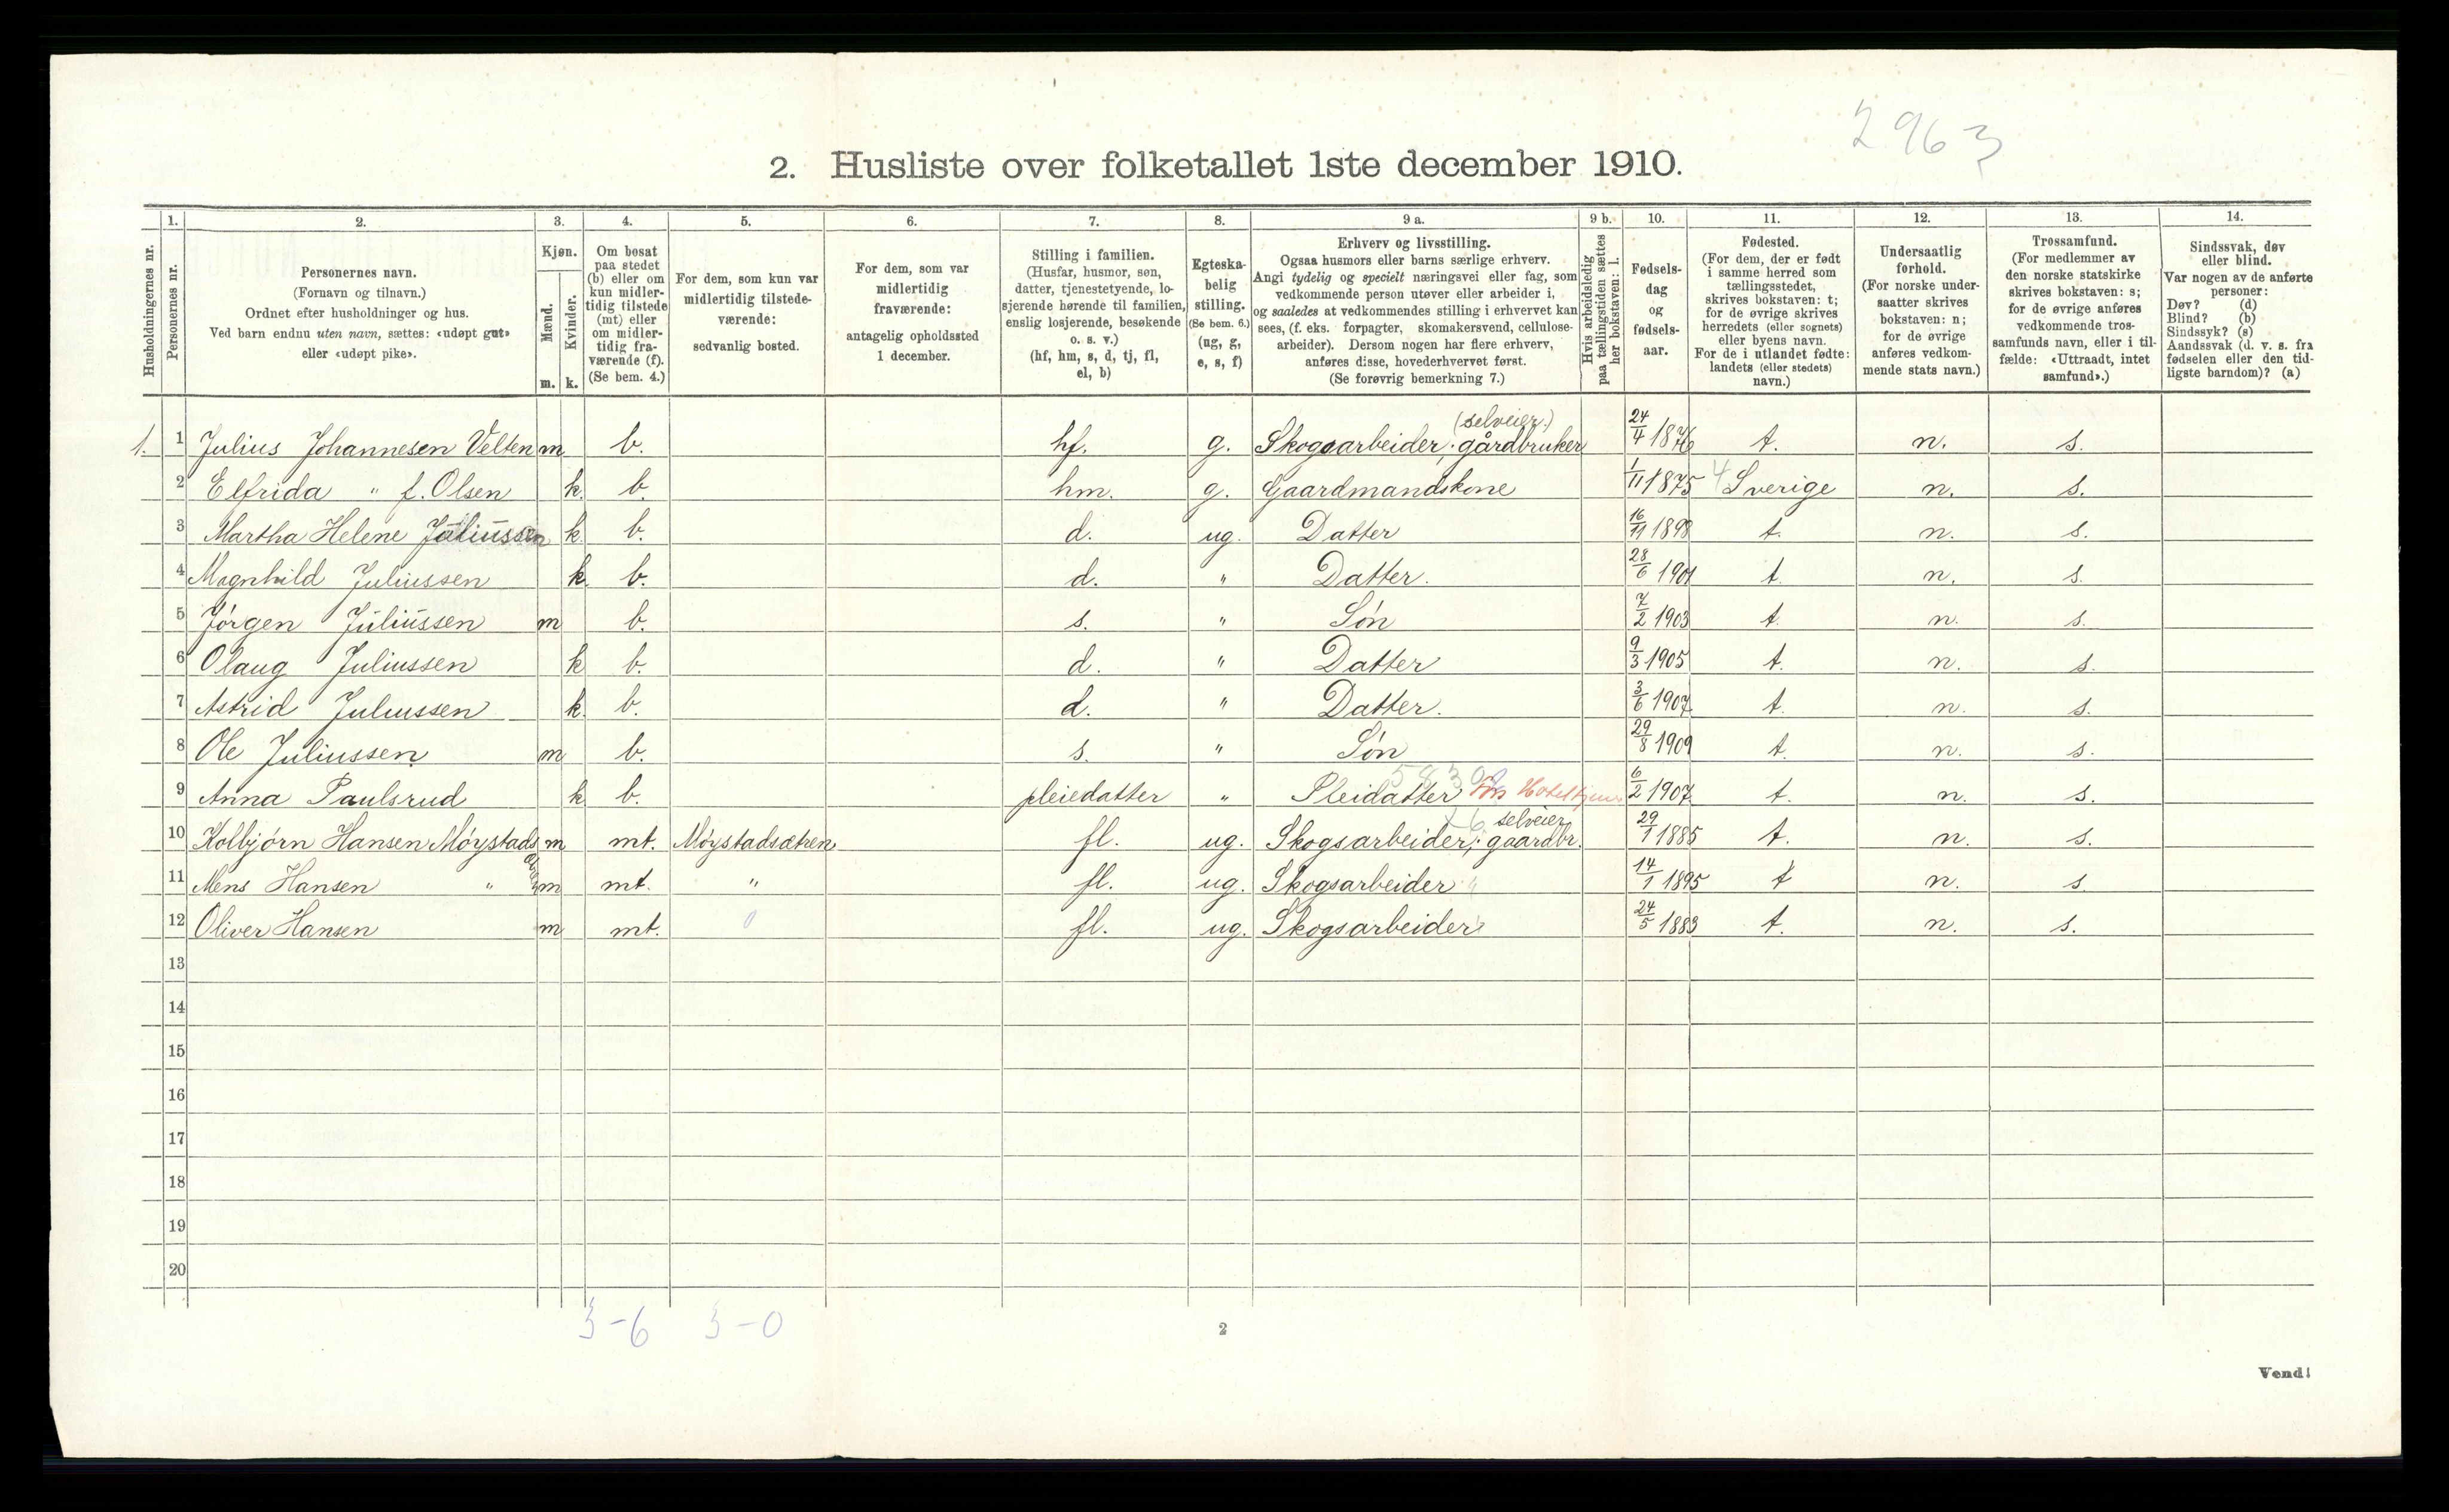 2963
2. Husliste over folketallet 1ste december 1910.
Husholdningernes nr.
1. Personernes nr.
2. Personernes navn.
(Fornavn og tilnavn.)
Ordnet efter husholdninger og hus.
Ved barn endnu uten navn, sættes: «udøpt gut»
eller «udøpt pike».
3. Kjøn.
Mænd. m.
Kvinder. k.
4. Om bosat
paa stedet
(b) eller om
kun midler-
tidig tilstede
(mt) eller
om midler-
tidig fra-
værende (f).
(Se bem. 4.)
5. For dem, som kun var
midlertidig tilstede-
værende:
sedvanlig bosted.
6. For dem, som var
midlertidig
fraværende:
antagelig opholdssted
1 december.
7. Stilling i familien.
(Husfar, husmor, søn,
datter, tjenestetyende, lo-
sjerende hørende til familien,
enslig losjerende, besøkende
o. s. v.)
(hf, hm, s, d, tj, fl,
el, b)
8. Egteska-
belig
stilling.
(Se bem. 6.)
(ug, g,
e, s, f)
9 a. Erhverv og livsstilling.
Ogsaa husmors eller barns særlige erhverv.
Angi tydelig og specielt næringsvei eller fag, som
vedkommende person utøver eller arbeider i,
og saaledes at vedkommendes stilling i erhvervet kan
sees, (f. eks. forpagter, skomakersvend, cellulose-
arbeider). Dersom nogen har flere erhverv,
anføres disse, hovederhvervet først.
(Se forøvrig bemerkning 7.)
9 b. Hvis arbeidsledig
paa tællingstiden sættes
her bokstaven: l.
10. Fødsels-
dag
og
fødsels-
aar.
11. Fødested.
(For dem, der er født
i samme herred som
tællingsstedet,
skrives bokstaven: t;
for de øvrige skrives
herredets (eller sognets)
eller byens navn.
For de i utlandet fødte:
landets (eller stedets)
navn.)
12. Undersaatlig
forhold.
(For norske under-
saatter skrives
bokstaven: n;
for de øvrige
anføres vedkom-
mende stats navn.)
13. Trossamfund.
(For medlemmer av
den norske statskirke
skrives bokstaven: s;
for de øvrige anføres
vedkommende tros-
samfunds navn, eller i til-
fælde: «Uttraadt, intet
samfund».)
14. Sindssvak, døv
eller blind.
Var nogen av de anførte
personer:
Døv? (d)
Blind? (b)
Sindssyk? (s)
Aandssvak (d. v. s. fra
fødselen eller den tid-
ligste barndom)? (a)
(selveier.)
1. 1 Julius Johannesen Velten m b. hf. g. Skogsarbeider; gårdbruker 24/4 1876 t. n. s.
2 Elfrida " f. Olsen k. b. hm. g. Gaardmandskone 1/11 1875 4 Sverige n. s.
3 Martha Helene Juliussen k. b. d. ug. Datter 16/11 1898 t. n. s.
4 Magnhild Juliussen k. b. d. " Datter. 28/6 1901 t. n. s.
5 Jørgen Juliussen m b. s. " Søn 7/2 1903 t. n. s.
6 Olaug Juliussen k b. d. " Datter 9/3 1905 t. n. s.
7 Astrid Juliussen k. b. d. " Datter. 3/6 1907 t. n. s.
8 Ole Juliussen m b. s. " Søn 29/8 1909 t. n. s.
9 Anna Paulsrud k b. pleiedatter " Pleidatter 6/2 1907 t. n. s.
selveier
10 Kolbjørn Hansen Møystads m mt. Møystadsætren fl. ug. Skogsarbeider; gaardbr. 29/1 1885 t. n. s.
11 Mens Hansen " m mt. " fl. ug. Skogsarbeider 14/1 1895 t n. s
12 Oliver Hansen m mt. 0 fl. ug. Skogsarbeider 24/5 1883 t. n. s.
13
14
15
16
17
18
19
20
3-6 3-0
2
Vend!